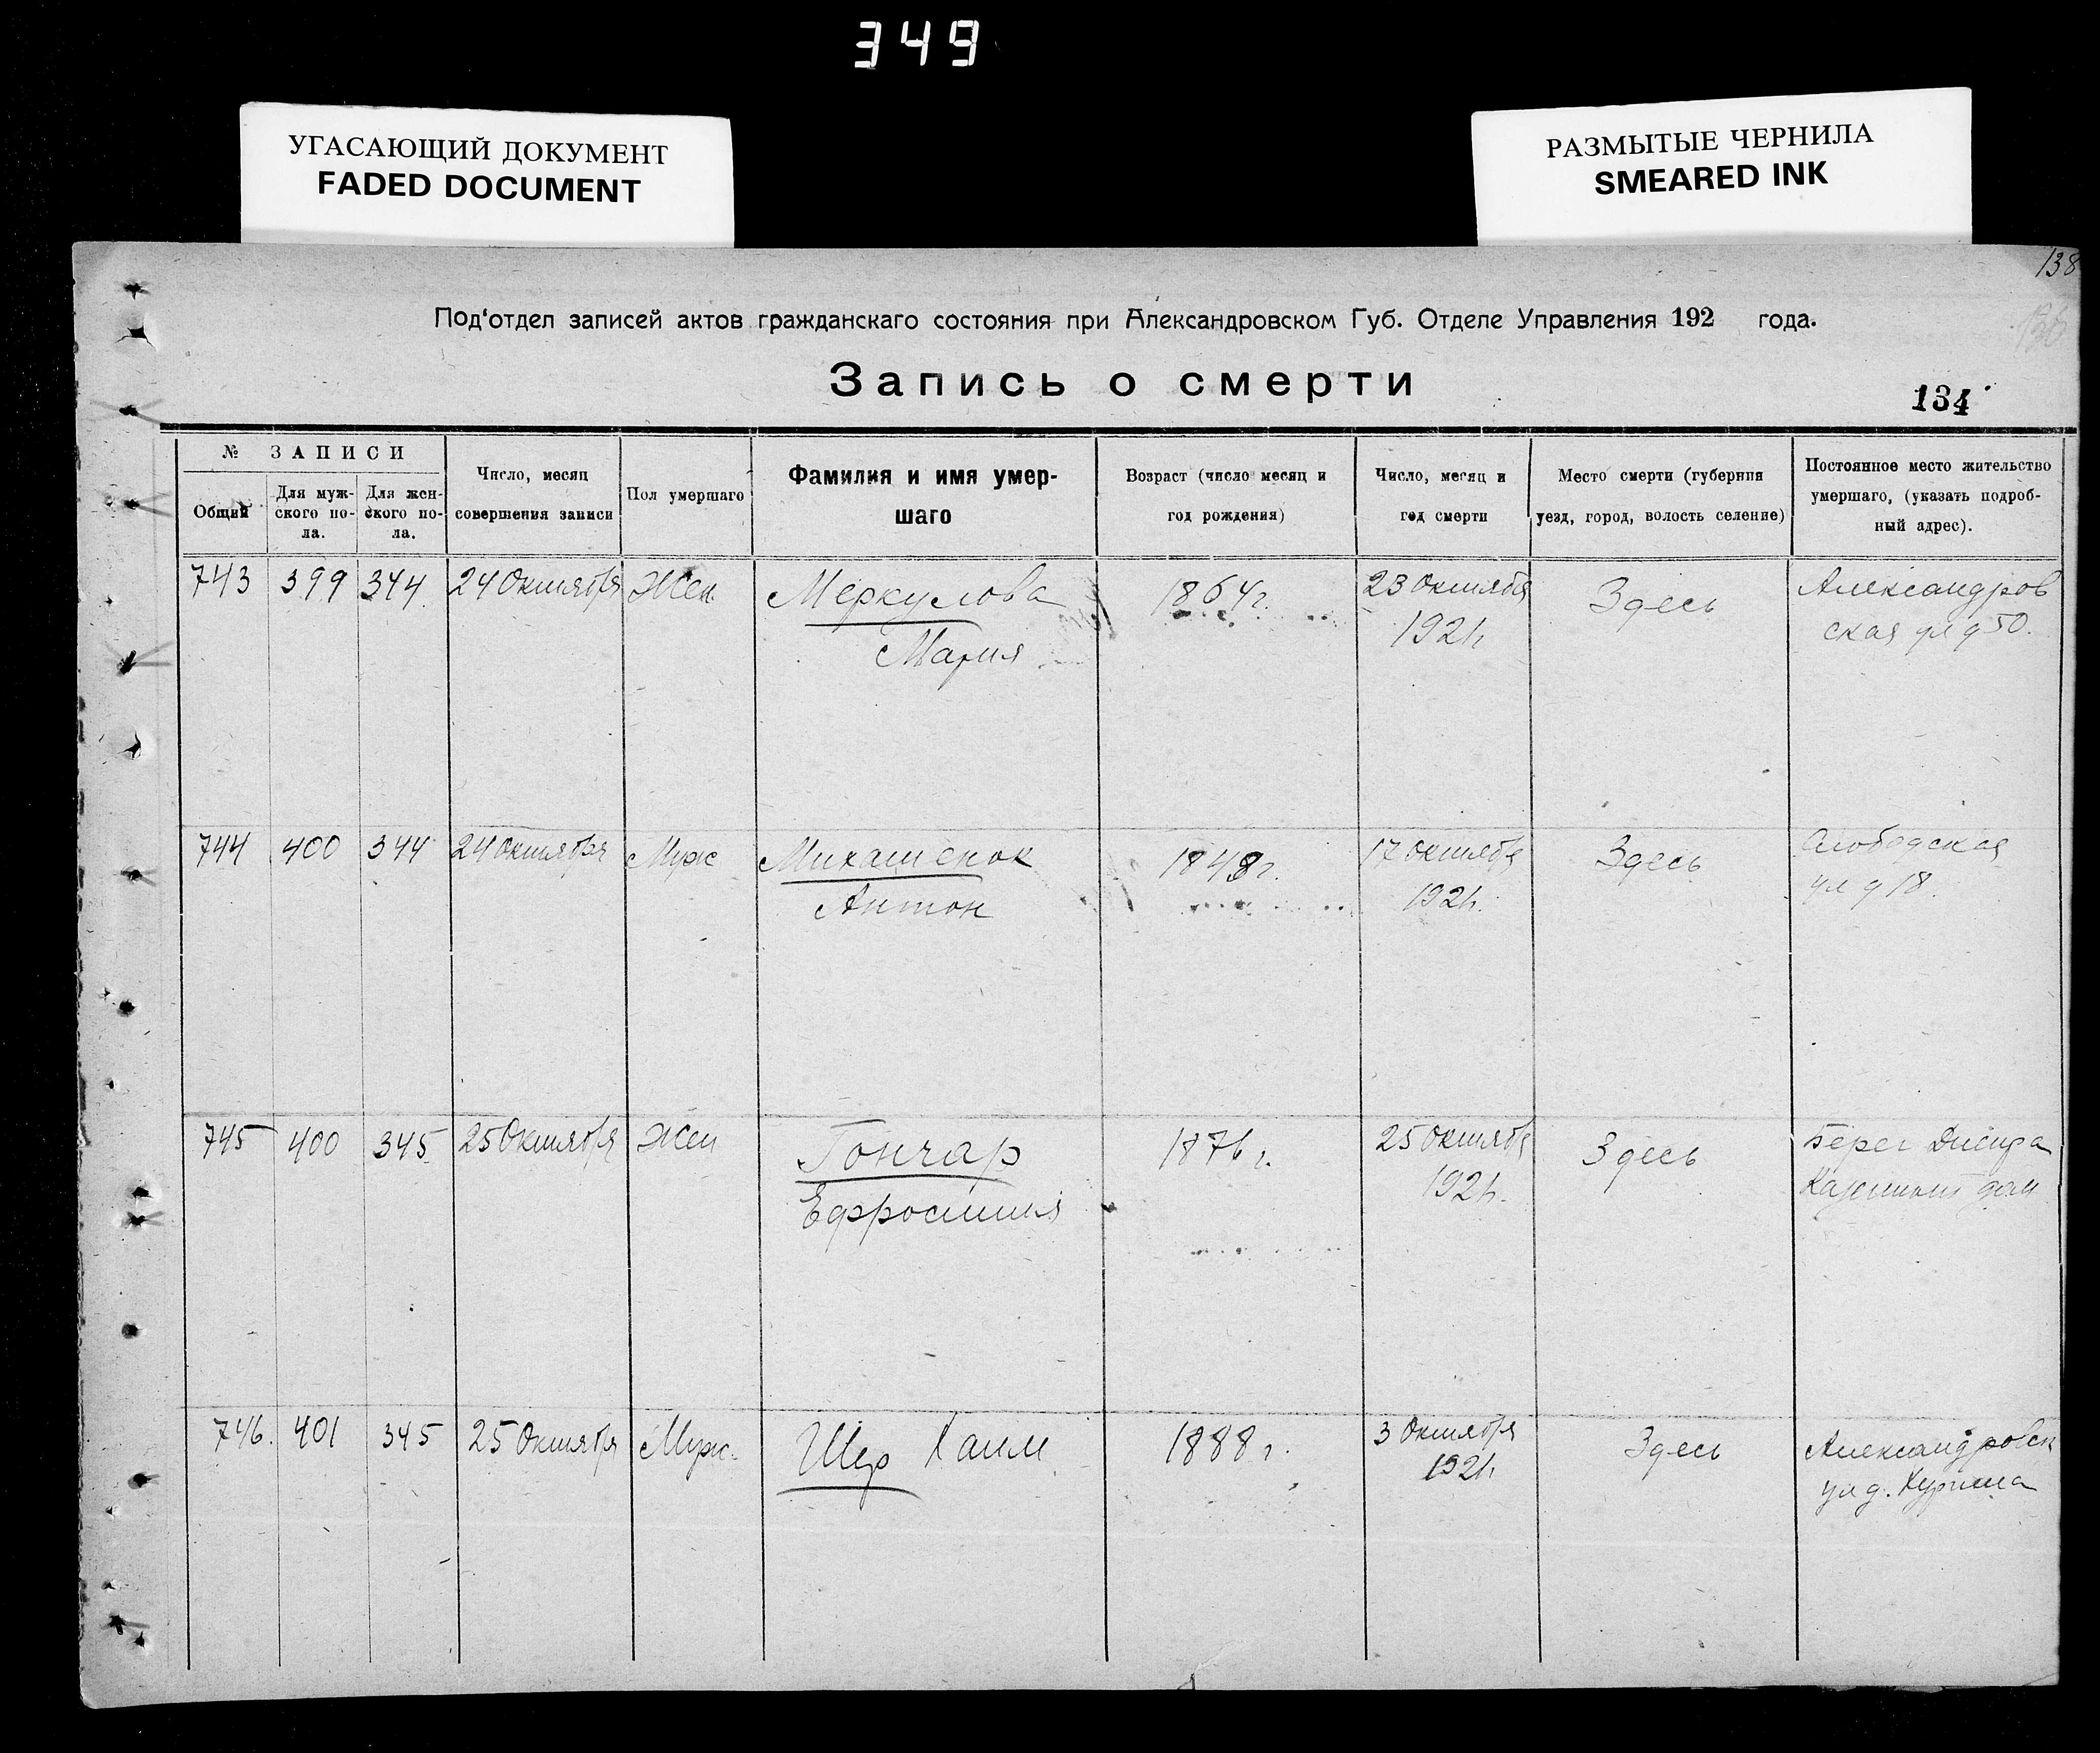 349
УГАСАЮЩИЙ ДОКУМЕНТ
FADED DOCUMENT
РАЗМЫТЫЕ ЧЕРНИЛА
SMEARED INK
138
Под'отдел записей актов гражданскаго состояния при Александровском Губ. Отделе Управления 192 года.
Запись о смерти
134
№ ЗАПИСИ
Общий
Для муж-
ского по-
ла.
Для жен-
ского по-
ла.
Число, месяц
совершения записи
Пол умершаго
Фамилия и имя умер-
шаго
Возраст (число месяц и
год рождения)
Число, месяц и
год смерти
Место смерти (губерния
уезд, город, волость селение)
Постоянное место жительство
умершаго, (указать подроб-
ный адрес).
743 399 344 24 Октября Жен Меркулова 1864г. 23 Октября Здесь Александров
Мария 1921г. ская ул д 50.
744 400 344 24 Октября Муж 1848г. 17 октября Здесь Слободская
Антон 1921г. ул д 18.
745 400 345 25 Октября Жен Гончар 1876г. 25 октября Здесь Берег Днепра
Ефросиния 1921г. дом
746. 401 345 25 Октября Муж. Шер Хаим 1888г. 3 Октября Здесь Александровск
1921г. ул д.